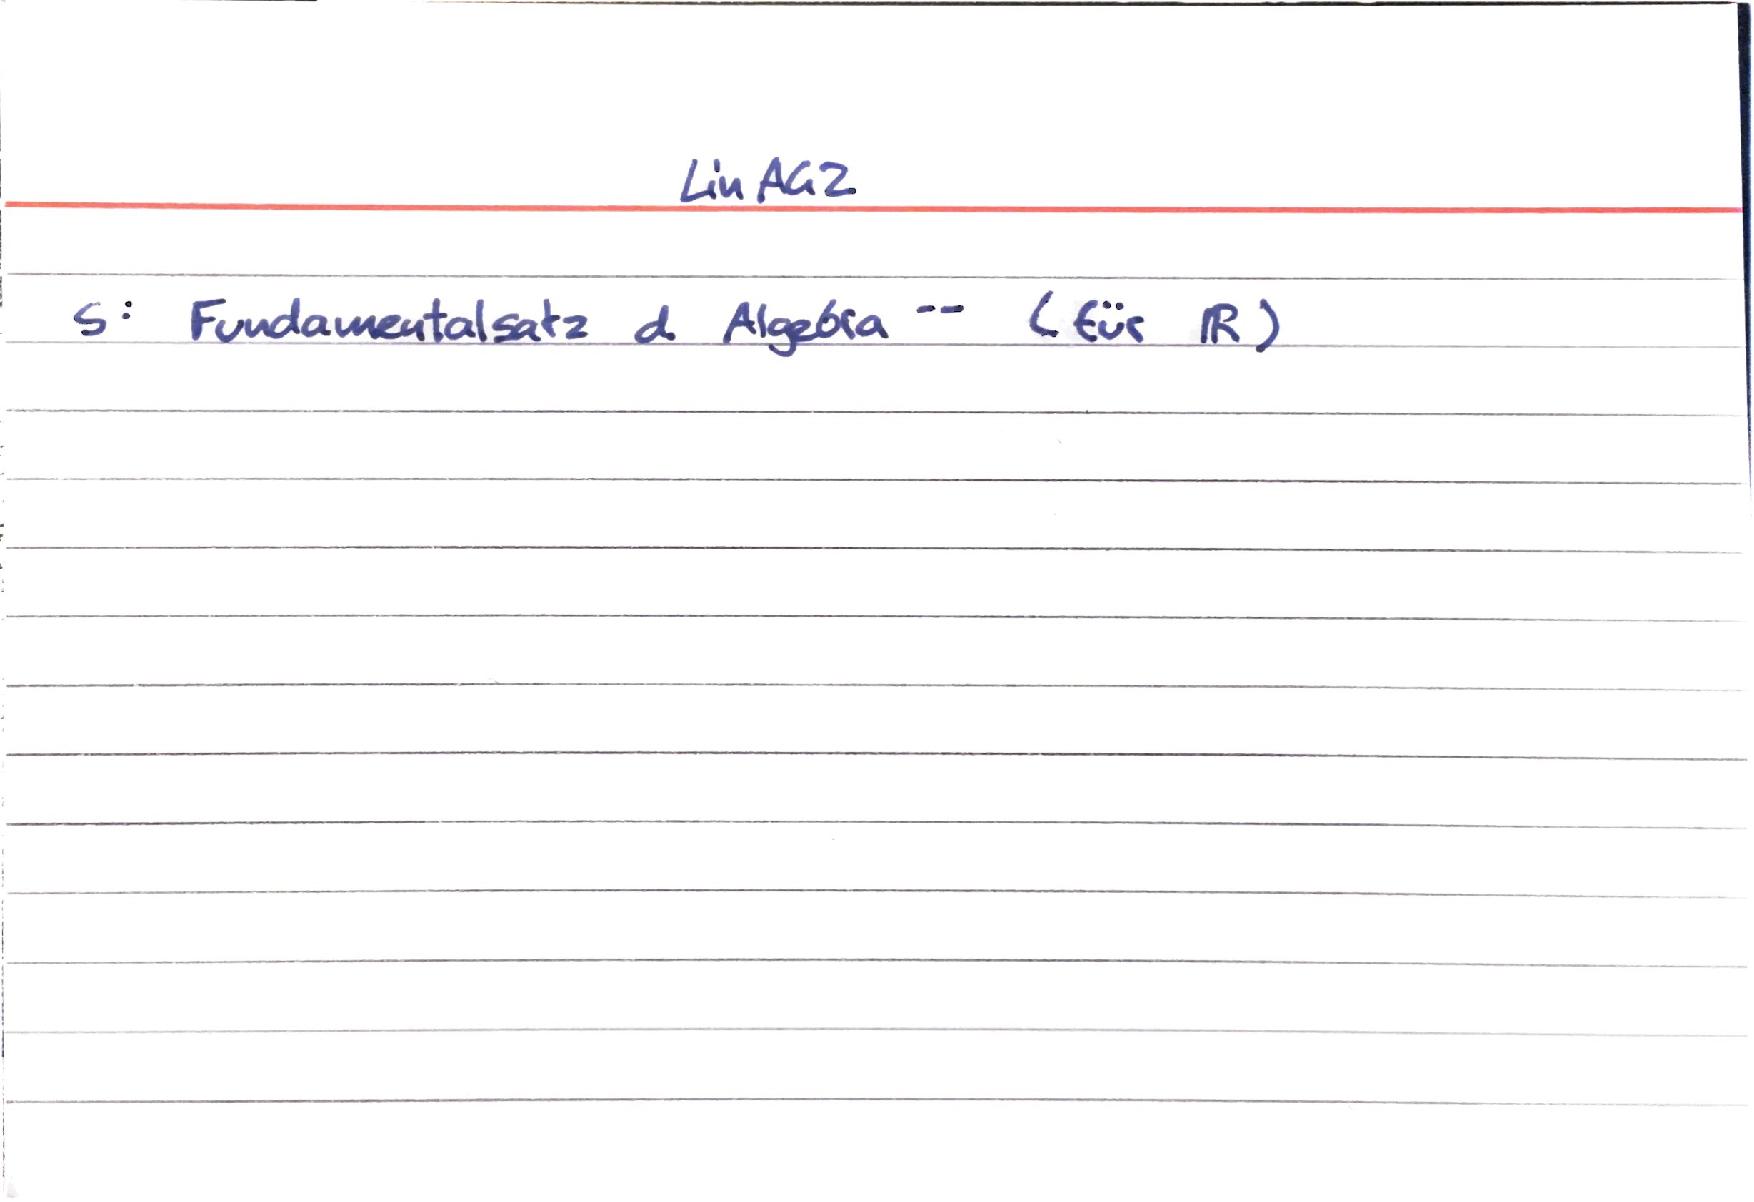 LinAG2
S: Fundamentalsatz d Algebra -- (für ℝ)